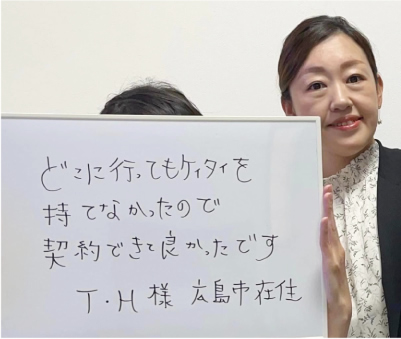 どこに行ってもケイタイを
持てなかったので
契約できて良かったです
T・H様 広島市在住